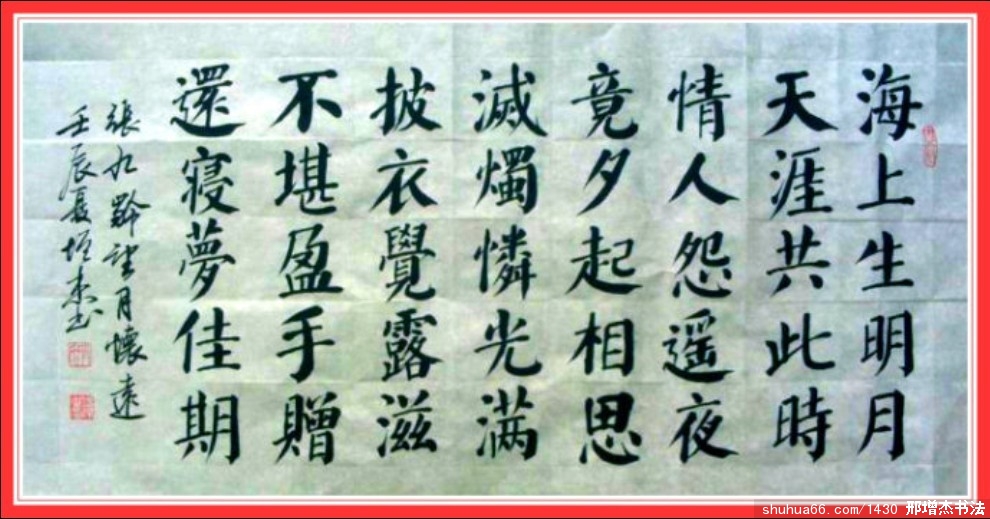 海上生明月
天涯共此時
情人怨遥夜
竟夕起相思
滅燭憐光满
披衣覺露滋
不堪盈手贈
還寢夢佳期
張九齡望月懷遠
壬辰夏增杰书
shuhua66.com/1430 邢增杰书法